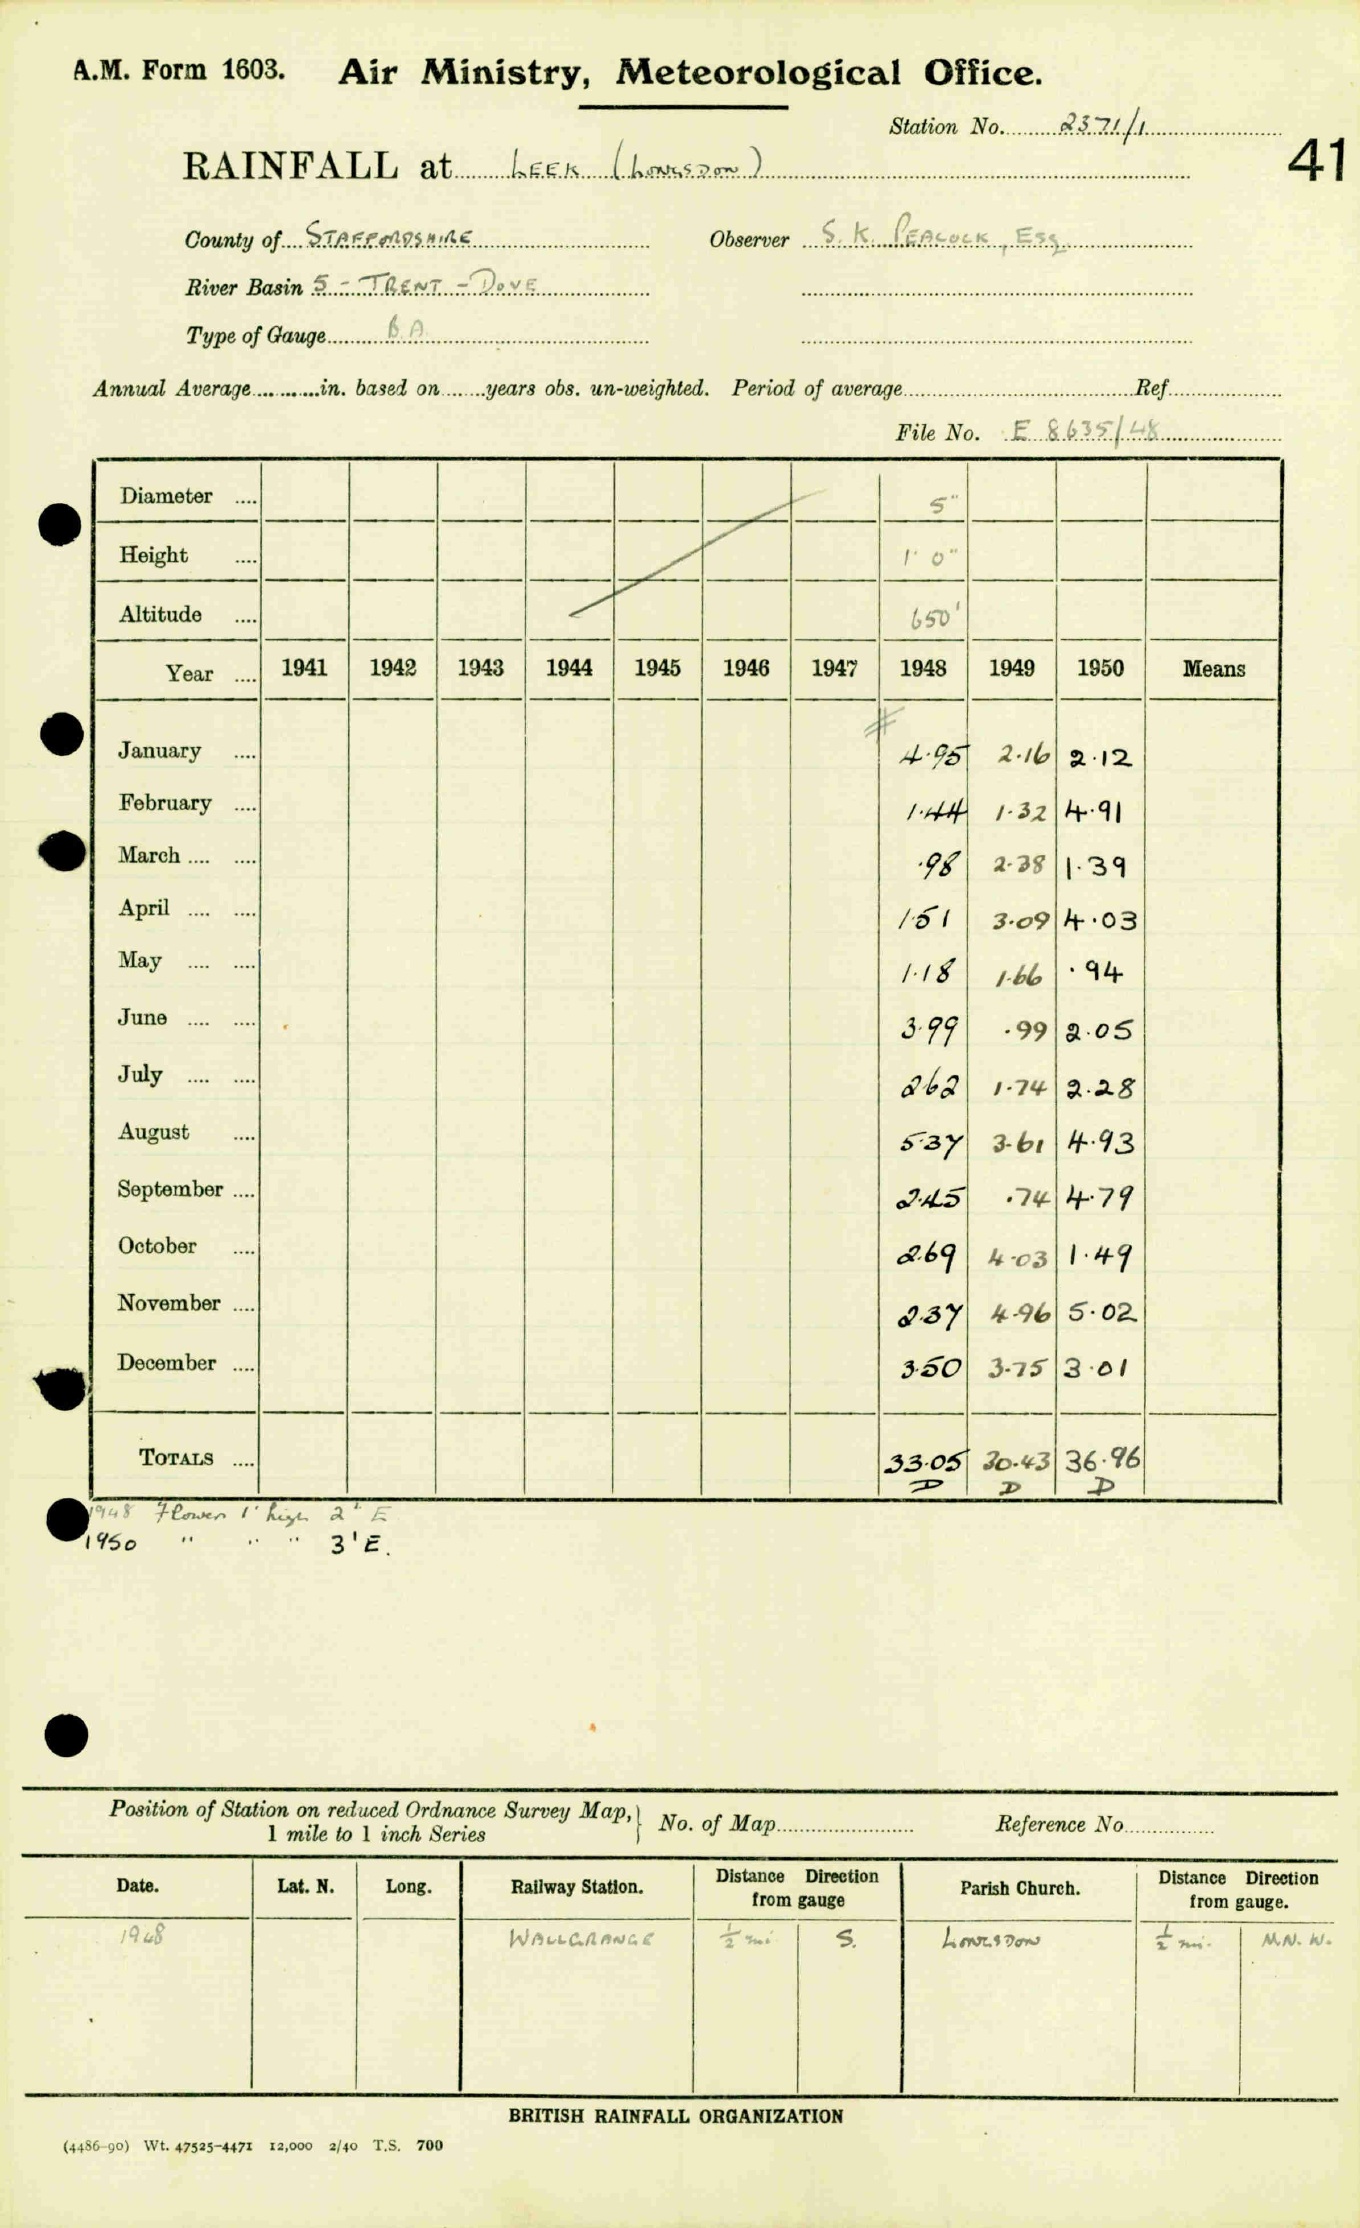 A.M. Form 1603. Air Ministry, Meteorological Office.
Station No. 2371/1
41
RAINFALL at LEEK (LONGSDON)
County of STAFFORDSHIRE Observer S. K. PEACOCK, ESQ
River Basin 5 - TRENT - DOVE
Type of Gauge B.A.
Annual Average in. based on years obs. un-weighted. Period of average Ref.
File No. E 8635/48
Diameter .... 5"
Height .... 1' 0"
Altitude .... 650'
Year .... 1941 1942 1943 1944 1945 1946 1947 1948 1949 1950 Means
January .... 4.95 2.16 2.12
February .... 1.44 1.32 4.91
March .... .... .98 2.38 1.39
April .... .... 1.51 3.09 4.03
May .... .... 1.18 1.66 .94
June .... .... 3.99 .99 2.05
July .... .... 2.62 1.74 2.28
August .... 5.37 3.61 4.93
September .... 2.45 .74 4.79
October .... 2.69 4.03 1.49
November .... 2.37 4.96 5.02
December .... 3.50 3.75 3.01
TOTALS .... 33.05 30.43 36.96
D D D
1948 Flowers 1' high 2' E
1950 " " " 3' E.
Position of Station on reduced Ordnance Survey Map,
1 mile to 1 inch Series
No. of Map Reference No
Date. Lat. N. Long. Railway Station. Distance Direction from gauge Parish Church. Distance Direction from gauge.
1948 WALLGRANGE ½ mi S. LONGSDON ½ mi. W.
BRITISH RAINFALL ORGANIZATION
(4486-90) Wt. 47525-4471 12,000 2/40 T.S. 700